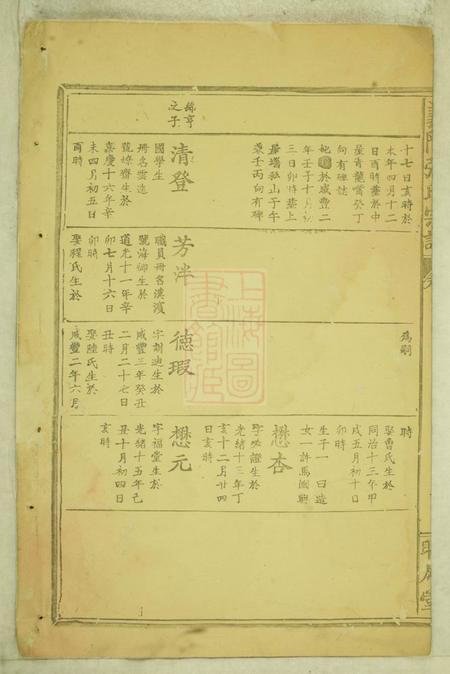 十七日亥時於
本年四月十二
日酉時葬於中
星肯龍嘴癸丁
向有碑誌
於咸豐二
年壬子十月初
三日卯時葬上
山子午
兼壬丙向有碑
錦亨
之子
清登
國學生
冊名雲達
生於
嘉慶十六年辛
未四月初五日
酉時
芳泮
職員冊名漢濱
號海卿生於
道光十一年辛
卯七月十六日
卯時
娶程氏生於
為嗣
德瑕
字訓迪生於
咸豐三年癸丑
二月二十七日
丑時
娶陸氏生於
咸豐二年六月
時
娶曹氏生於
同治十三年甲
戌五月初十日
卯時
生子一曰造
女一許馬
懋杏
生於
光緒十三年丁
亥十二月廿四
日亥時
懋元
字福堂生於
光緒十五年己
丑十月初四日
亥時
上海圖
書館藏